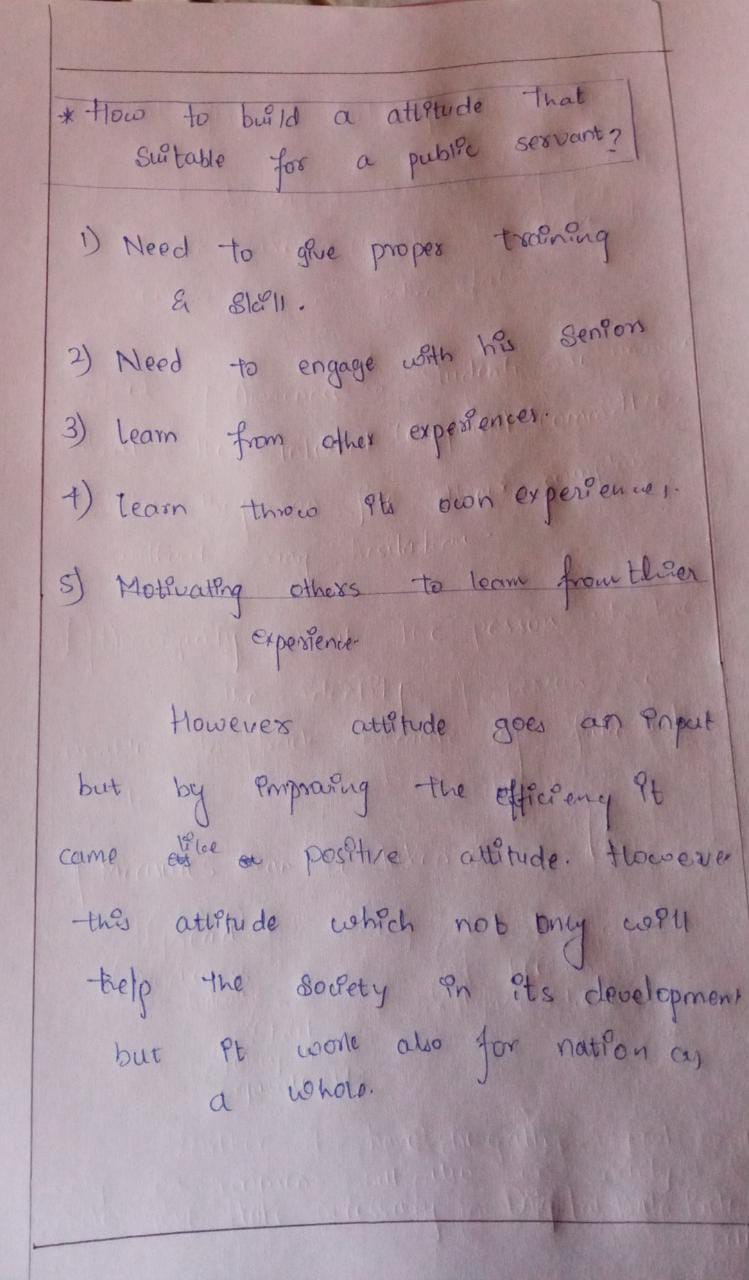 * How to build a attitude That
suitable for a public servant?
1) Need to give proper training
& Skill.
2) Need to engage with his seniors
3) learn from other experiences.
4) learn throw its own experiences.
5) Motivating others to learn from thier
experience.
However attitude goes an input
but by impraing the efficieny it
came like positive attitude. However
this attitude which not only will
help the society in its development
but it work also for nation as
a whole.